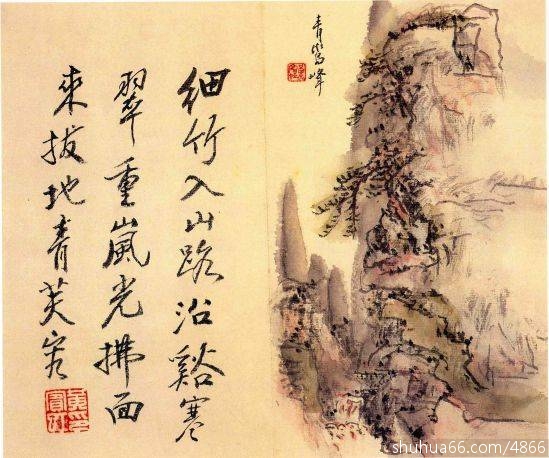 青鸞峰
細竹入山路沿谿寒
翠重嵐光拂面
來拔地青芙蓉
shuhua66.com/4866